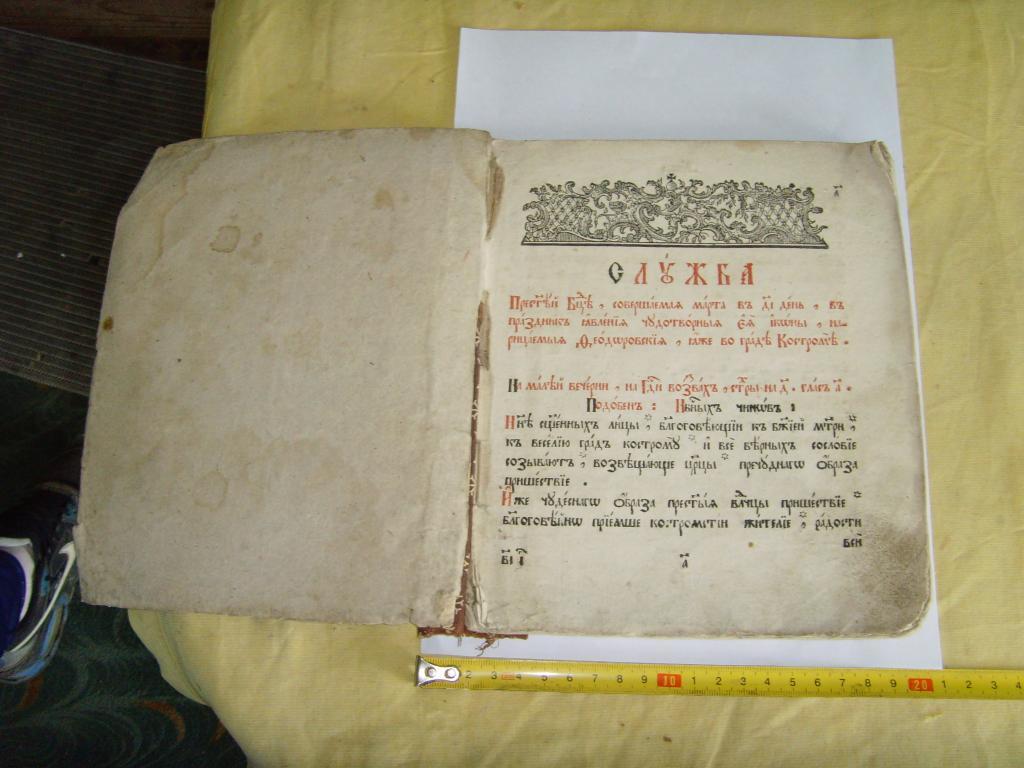 а҃
СЛꙊ́ЖБА
Прест҃ѣ́й Бц҃ѣ , соверша́емая ма́рта въ д҃і де́нь , въ
пра́здникъ ꙗ҆вле́нїѧ чꙋдотво́рныѧ є҆ѧ̀ і҆кѡ́ны , на-
рица́емыѧ Ѳеѡ́дѡровскїѧ , ꙗ҆́же во гра́дѣ Костромѣ̀ .
На ма́лѣй вече́рни , на Гдⷭ҇и воззва́хъ , стх҃ры на д҃ . гла́съ а҃ .
Подо́бенъ : Нбⷭ҇ныхъ чинѡ́въ :
Нн҃ѣ сщ҃е́нныхъ ли́цы , благоговѣ́ющїи къ бж҃їей мт҃ри ,
къ весе́лїю гра́дъ кострому̀ и҆ всѐ вѣ́рныхъ сосло́вїе
созыва́ютъ , возвѣща́юще цр҃и́цы пречꙋ́днагѡ ѻ҆́браза
прише́ствїе .
И҆́же чꙋде́снагѡ ѻ҆́браза прест҃ы́ѧ влⷣчцы прише́ствїе
благоговѣ́йнѡ прїе́мше костромсті́и жи́телїе , ра́дости
всѝ
а҃
2 3 4 5 6 7 8 9 10 1 2 3 4 5 6 7 8 9 20 1 2 3 4